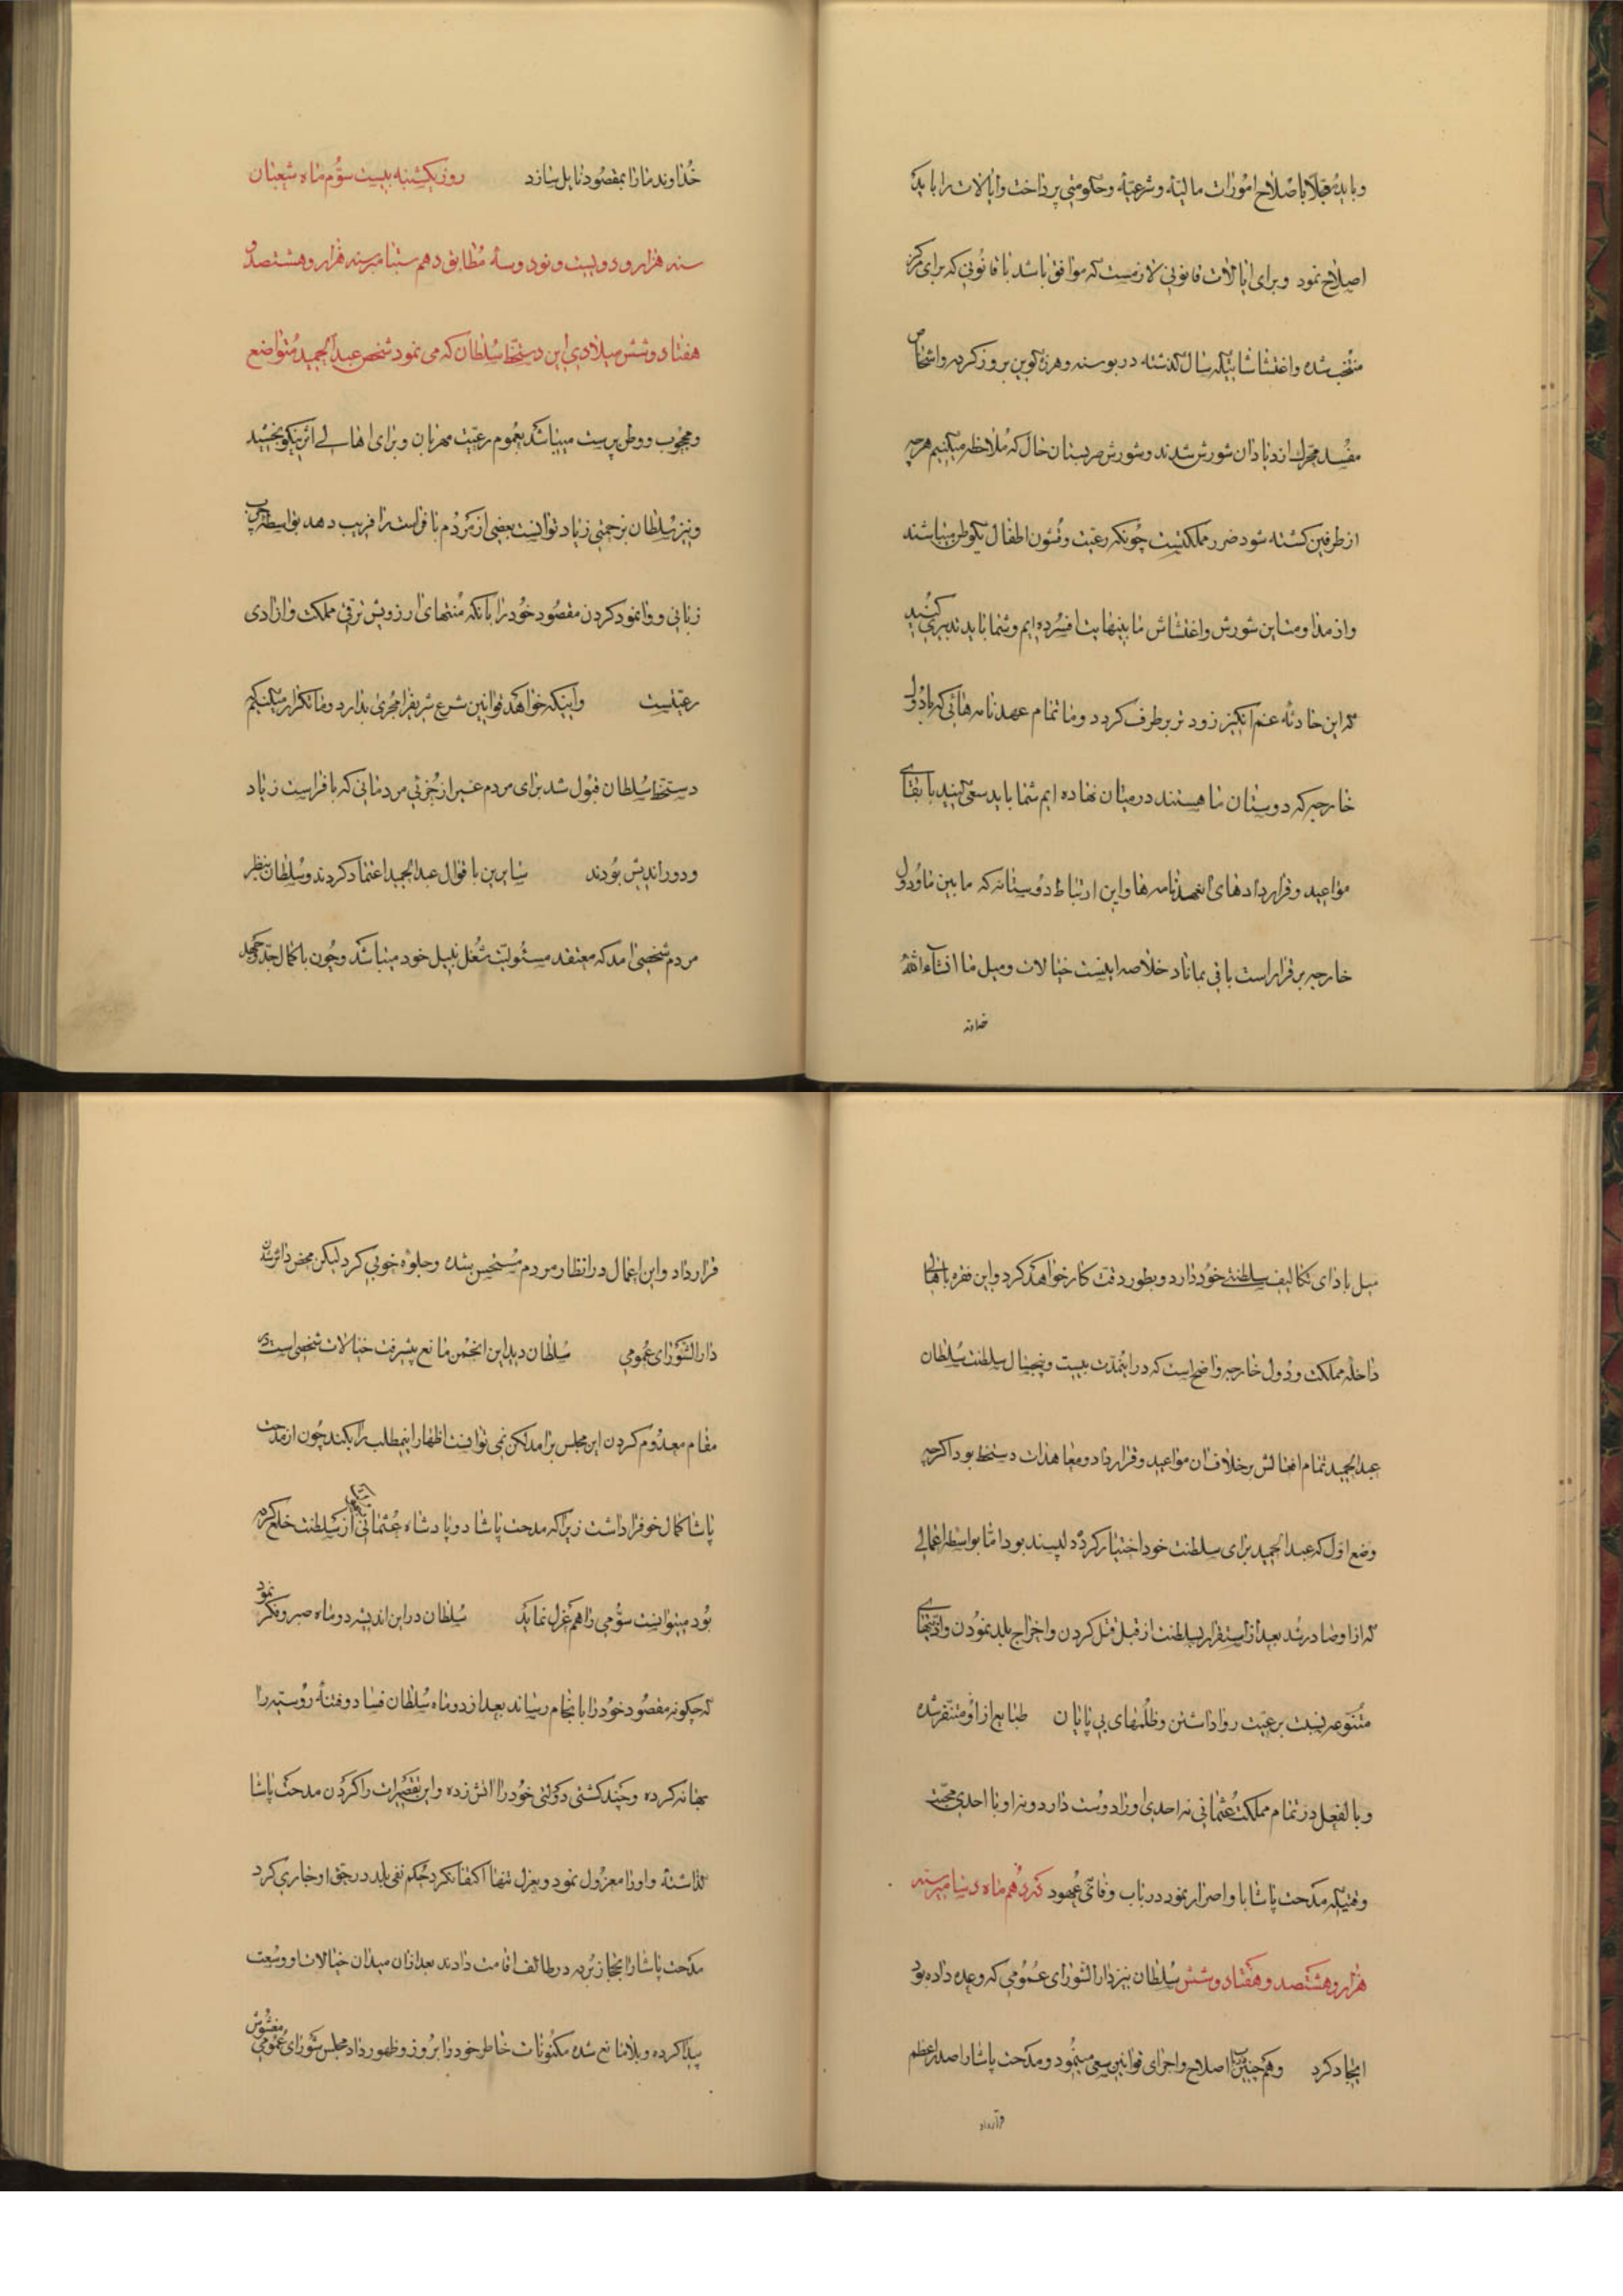 و باید قبلا باصلاح امورات مالیه و شرعیه و حکومتی پرداخت و ایالات را باید
اصلاح نمود و برای ایالات قانونی لازمست که موافق باشد با قانونی که برای مرکز
منتخب شده و اغتشاشاتیکه سال گذشته در بوسنه و هرزکوین بروز کرده و اشخاص
مفسد محرک از دیاد آن شورش شدند و شورش صربستان حال که ملاحظه میکنیم هر چه
از طرفین کشته شود ضرر مملکتست چونکه رعیت و قشون اطفال یکوطن میباشند
و از مداومت این شورش و اغتشاش ما بینهایت افسرده ایم و شما باید تدبیری کنید
که این حادثه غم انکیز زودتر برطرف کردد و ما تمام عهدنامه هائی که با دول
خارجه که دوستان ما هستند در میان نهاده ایم شما باید سعی کنید با بقای
مواعید و قراردادهای انعهدنامه ها و این ارتباط دوستانه که ما بین ما و دول
خارجه برقرار است باقی بماناد خلاصه اینست خیالات و میل ما انشاءالله
خداوند
خداوند ما را بمقصود نایل سازد روز یکشنبه بیست سوم ماه شعبان
سنه هزار و دویست و نود و سه مطابق دهم سپتامبر سنه هزار و هشتصد و
هفتاد و شش میلادی این دستخط سلطان که می نمود شخص عبدالحمید متواضع
و محجوب و وطن پرست میباشد بعموم رعیت مهربان و برای اهالی اثر نیکو بخشید
و نیز سلطان بزحمتی زیاد توانست بعضی از مردم بافراست را فریب دهد بواسطه چرب
زبانی و وانمود کردن مقصود خود را بانکه منتهای ارزویش ترقی مملکت و ازادی
رعیتست و اینکه خواهد قوانین شرع شریف را مجری بدارد و ما تکرار میکنیم
دستخط سلطان قبول شد برای مردم غیر از جزئی مردمانی که با فراست زیاد
و دوراندیش بودند سایرین با قوال عبدالحمید اعتماد کردند و سلطان بنظر
مردم شخصی امد که معتقد مسئولیت شغل نبیل خود میباشد و چون با کمال جد و جهد
میل بادای تکالیف سلطنتی خود دارد و بطور دقت کار خواهد کرد و این فقره باهالی
داخله مملکت و دول خارجه واضح است که در اینمدت بیست و پنجسال سلطنت سلطان
عبدالحمید تمام افعالش برخلاف ان مواعید و قرارداد و معاهدات دستخط بود اکرچه
وضع اول که عبدالحمید برای سلطنت خود اختیار کرد دلپسند بود اما بواسطه اعمالی
که از او صادر شد بعد از استقرار سلطنت از قبیل قتل کردن و اخراج بلد نمودن و اذیتهای
متنوعه نسبت برعیت روا داشتن و ظلمهای بی پایان طبایع از او متنفر شده
و بالفعل در تمام مملکت عثمانی نه احدی او را دوست دارد و نه او با احدی محبت
وقتیکه مدحت پاشا با و اصرار نمود در باب وفای عهود که دهم ماه دسامبر سنه
هزار و هشتصد و هفتاد و شش سلطان نیز دارالشورای عمومی که وعده داده بود
ایجاد کرد و همچنین در اصلاح و اجرای قوانین سعی مینمود و مدحت پاشا را صدراعظم
قرارداد
قرارداد و این اعمال در انظار مردم مستحسن شده و جلوه خوبی کرد لیکن محض دائر شدن
دارالشورای عمومی سلطان دید این انجمن مانع پیشرفت خیالات شخصی است در
مقام معدوم کردن این مجلس برامد لکن نمی توانست اظهار اینمطلب را بکند چون از مدحت
پاشا کمال خوف را داشت زیرا که مدحت پاشا دو پادشاه عثمانی را از سلطنت خلع کرده
بود میتوانست سومی را هم عزل نماید سلطان در این اندیشه دو ماه صبر و فکر نمود
که چکونه مقصود خود را بانجام رساند بعد از دو ماه سلطان فساد و فتنه روسیه را
بهانه کرده و چند کشتی دولتی خود را اتش زده و این تقصیرات را کردن مدحت پاشا
گذاشته و او را معزول نمود و بعزل تنها اکتفا نکرد حکم نفی بلد در حق او جاری کرد
مدحت پاشا را بحجاز برده در طائف اقامت دادند بعد از ان میدان خیالات او وسعت
پیدا کرده و بلا مانع شده مکنونات خاطر خود را بروز و ظهور داد مجلس شورای عمومی مغشوش